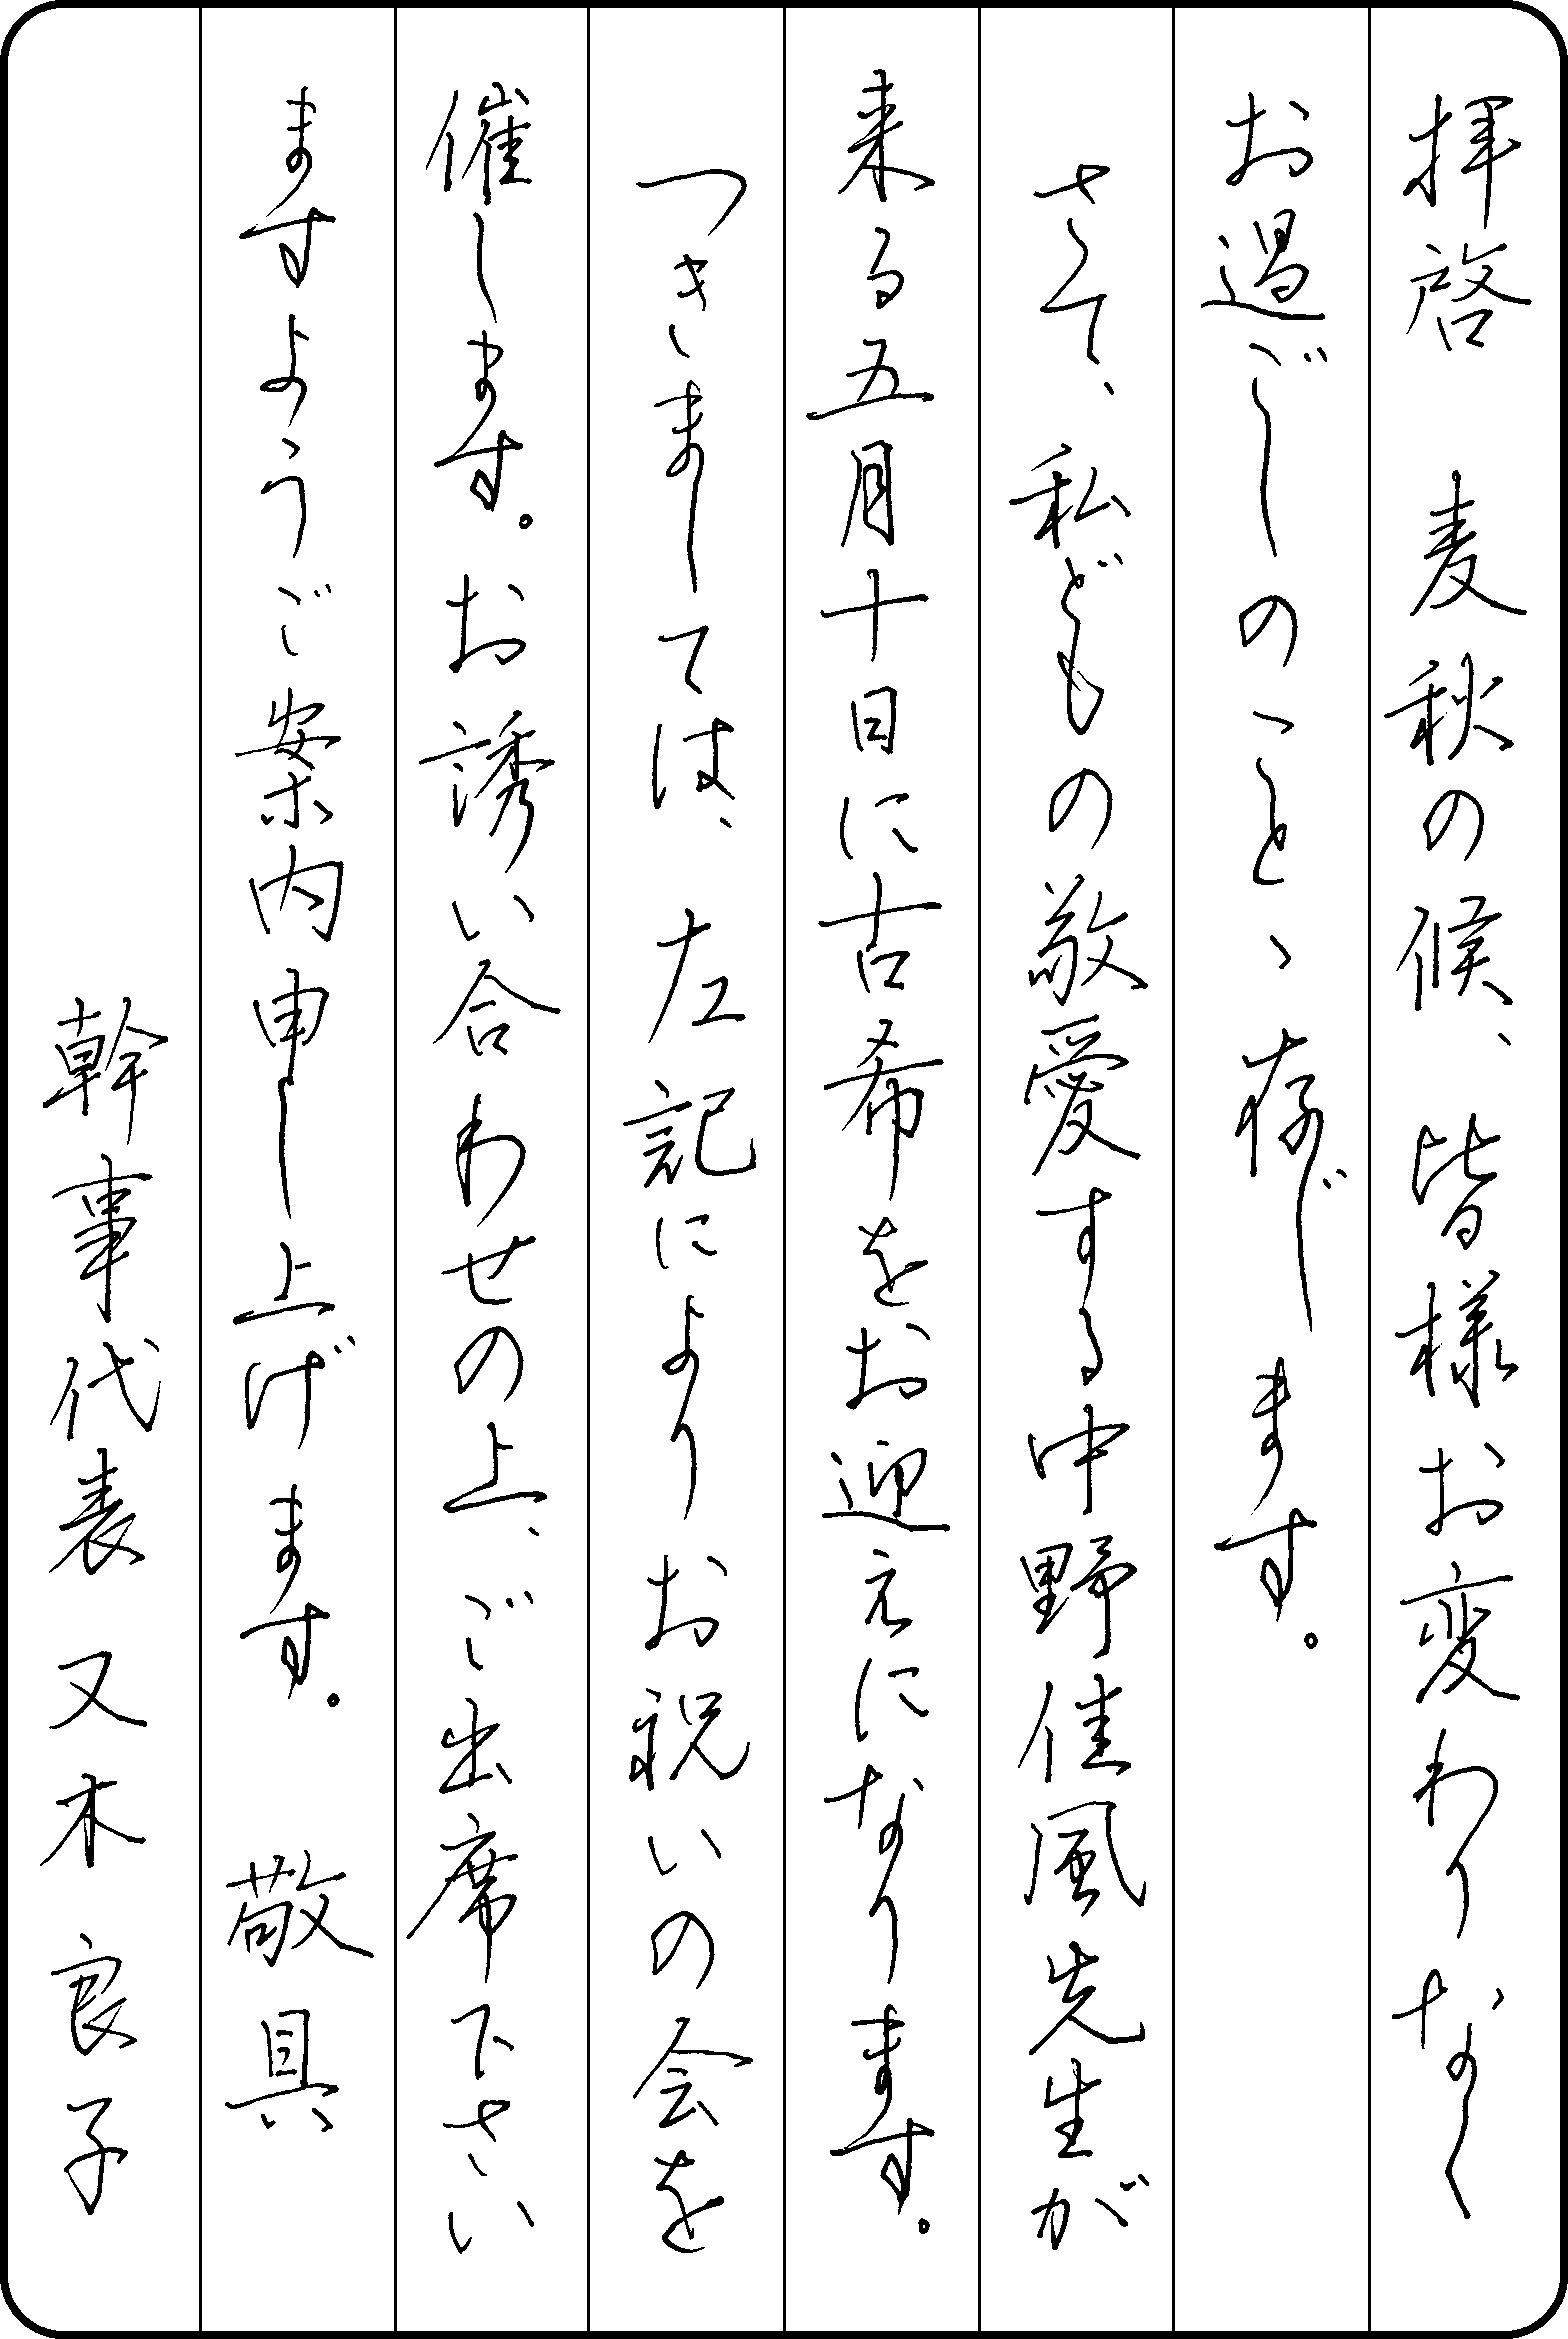 拝啓　麦秋の候、皆様お変わりなく
お過ごしのことゝ存じます。
さて、私どもの敬愛する中野佳風先生が
来る五月十日に古希をお迎えになります。
つきましては、左記によりお祝いの会を
催します。お誘い合わせの上、ご出席下さい
ますようご案内申し上げます。　敬具
幹事代表　又木良子